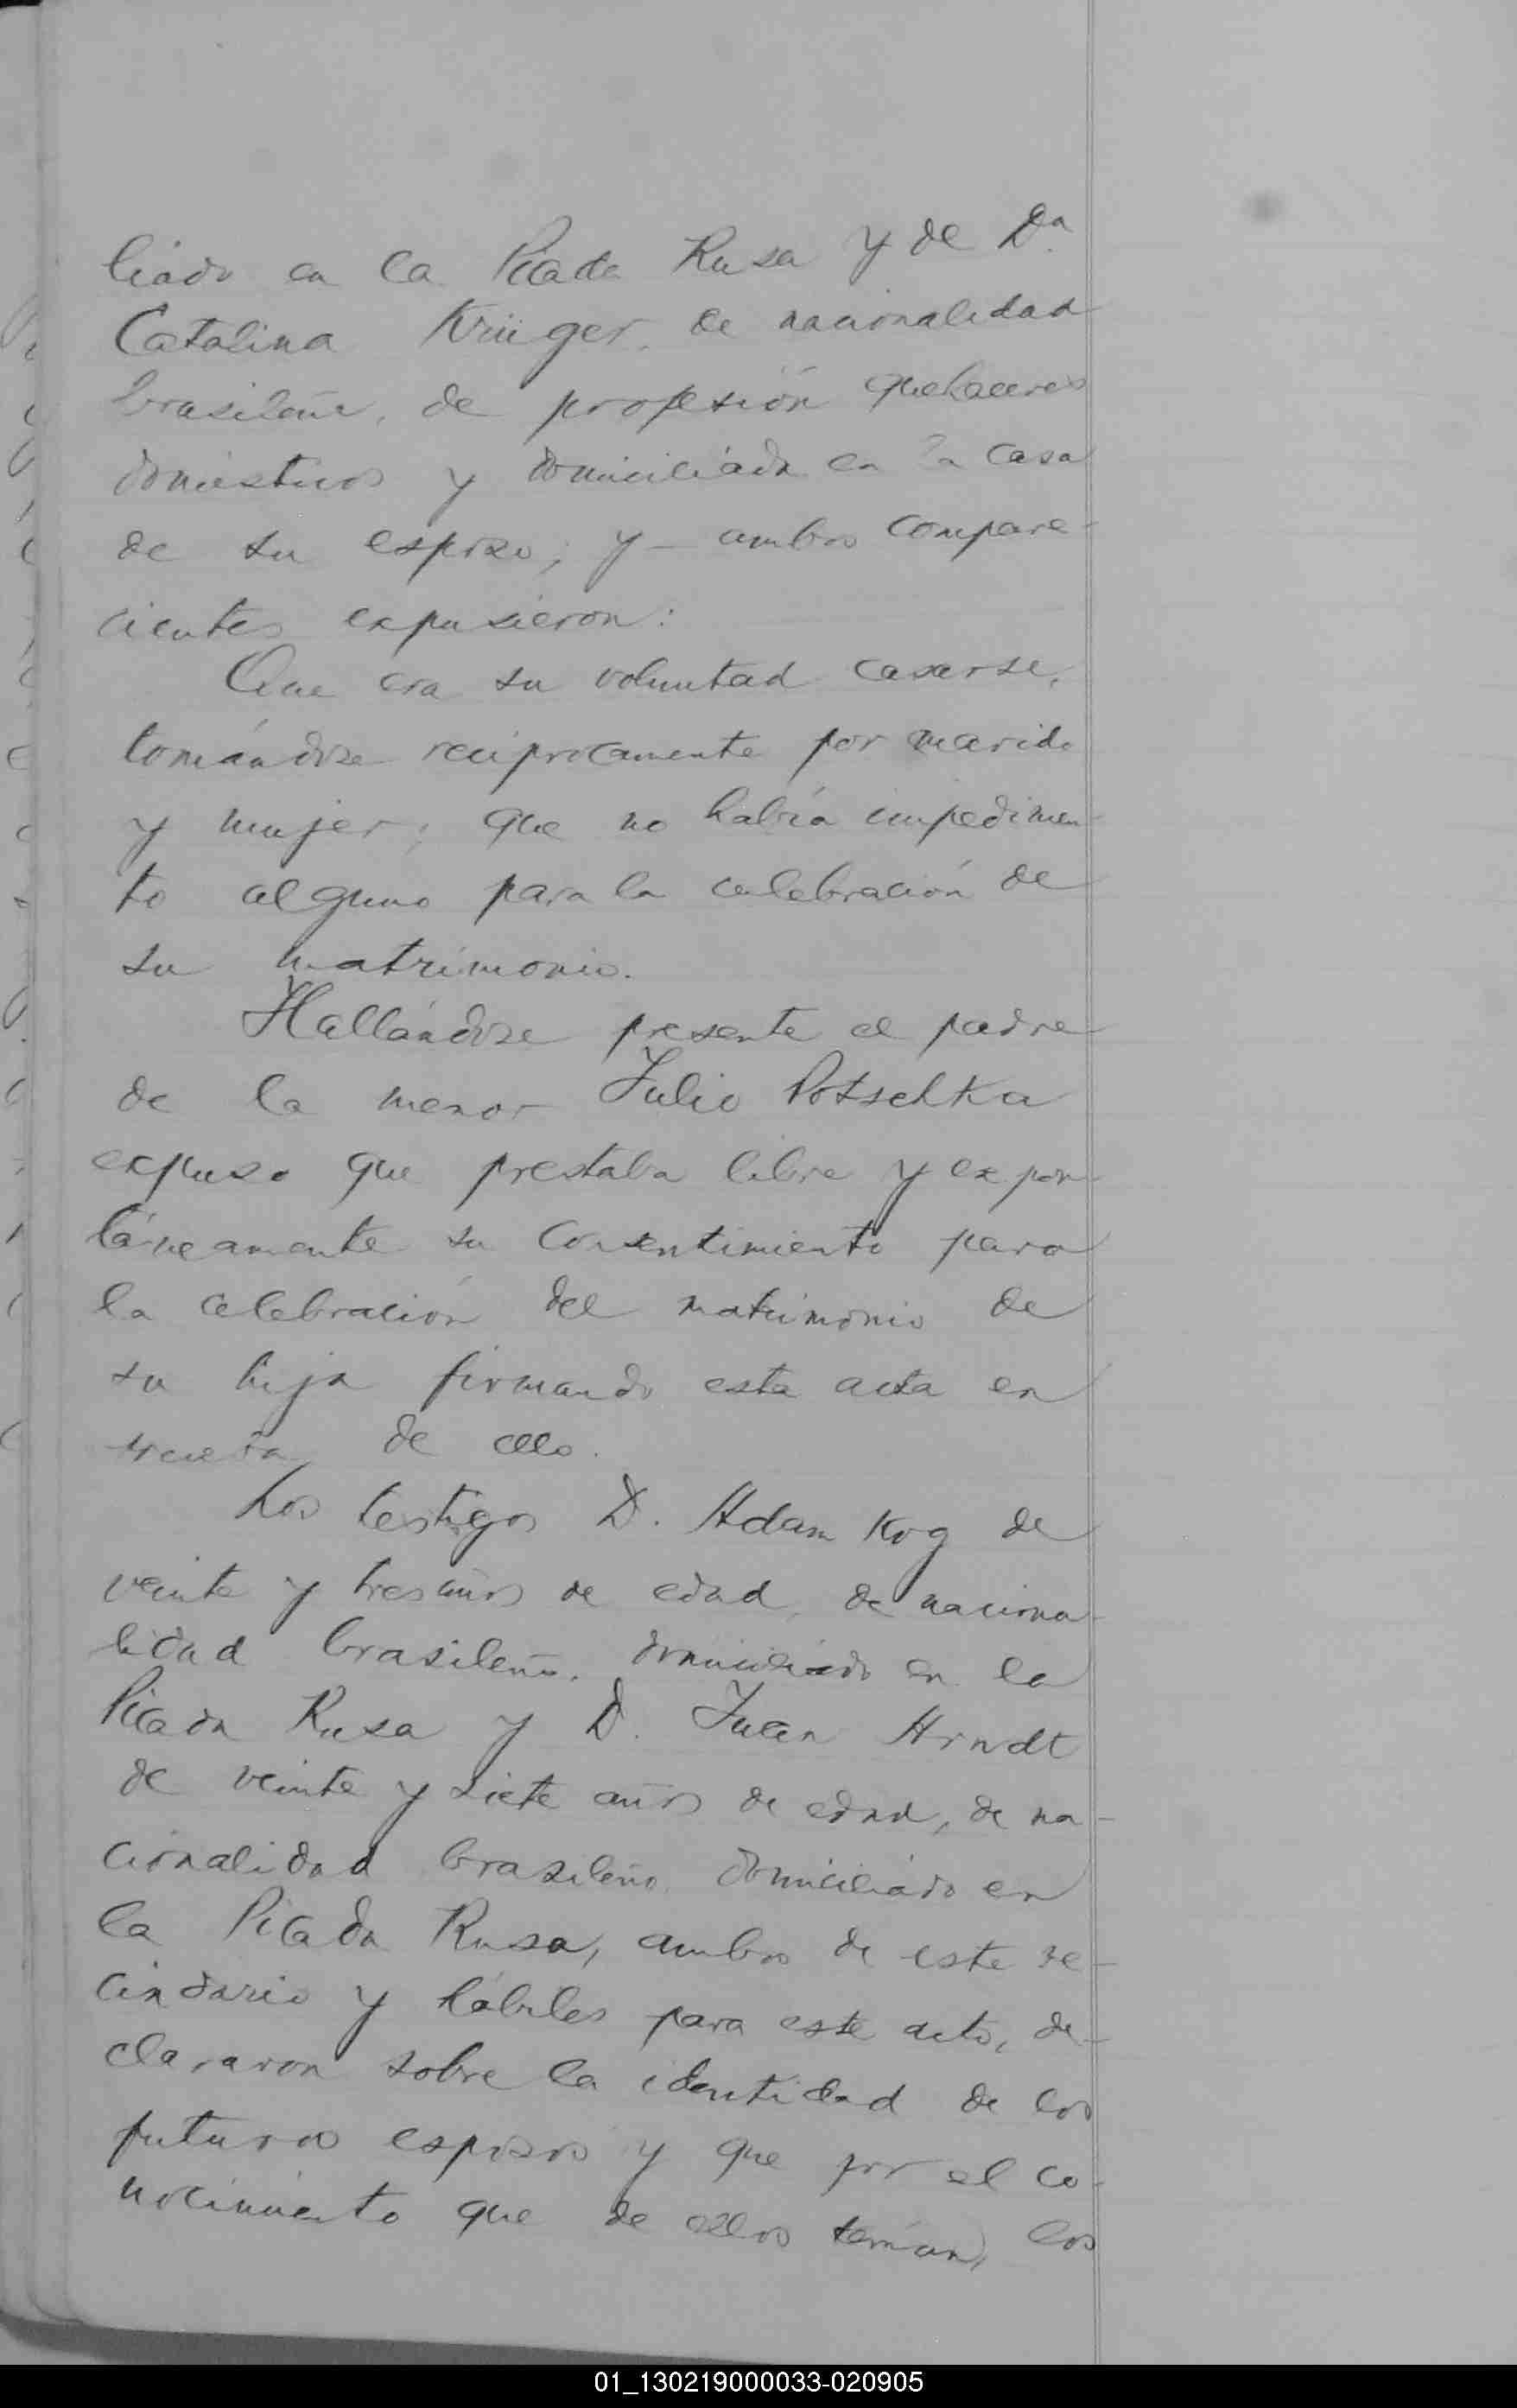 liado en la Picada Rusa y de Da.
Catalina Krüger, de nacionalidad
brasileña, de profesión quehaceres
domésticos y domiciliada en la casa
de su esposo; y ambos compare-
cientes expusieron:
Que era su voluntad casarse,
tomándose recíprocamente por marido
y mujer; que no había impedimen-
to alguno para la celebración de
su matrimonio.
Hallándose presente el padre
de la menor Julio Potschka
expuso que prestaba libre y expon-
táneamente su consentimiento para
la celebración del matrimonio de
su hija firmando esta acta en
de ello.
Los testigos D. Adam Kog de
veinte y tres años de edad, de naciona-
lidad brasileño, domiciliado en la
Picada Rusa y D. Juan Arndt
de veinte y siete años de edad, de na-
cionalidad brasileño, domiciliado en
la Picada Rusa, ambos de este ve-
cindario y hábiles para este acto, de-
clararon sobre la identidad de los
futuros esposos y que por el co-
nocimiento que de ellos tenían, los
01_130219000033-020905